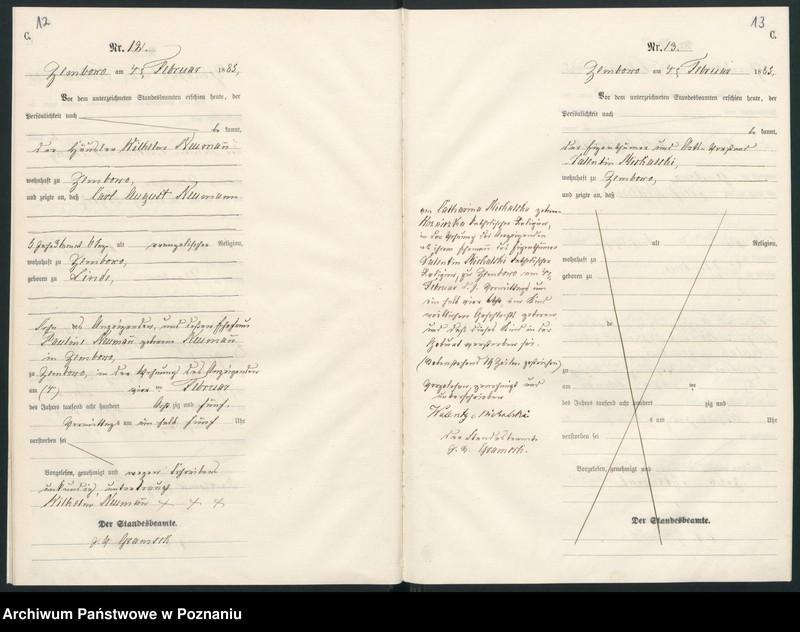 12
C.
Nr. 12.
Zemboro am 4ten Februar 1885,
Vor dem unterzeichneten Standesbeamten erschien heute, der
Persönlichkeit nach
be kannt,
der Häusler Wilhelm Neumann
wohnhaft zu Zemboro,
und zeigte an, daß Carl August Neumann
alt evangelischer Religion,
wohnhaft zu Zemboro,
geboren zu Linde,
Sohn des Anzeigenden, und dessen Ehefrau
Pauline Neumann geborene Neumann
in Zemboro,
zu Zemboro, in der Wohnung des Anzeigenden
am (4.) vier ten Februar
des Jahres tausend acht hundert acht zig und fünf.
Vormittags um ein halb fünf Uhr
verstorben sei
Vorgelesen, genehmigt und wegen Schreibens
unkundig, unterkreuzt
Wilhelm Neumann + + +
Der Standesbeamte.
g. w. Gramsch
13
C.
Nr. 13.
Zemboro am 4ten Februar 1885,
Vor dem unterzeichneten Standesbeamten erschien heute, der
Persönlichkeit nach
be kannt,
der Eigenthümer und
Valentin Michalski,
wohnhaft zu Zemboro,
und zeigte an, daß
von Catharina Michalska geborne
katholischer Religion,
in der Wohnung des Anzeigenden
ihrem Ehemann des Eigenthümers
Valentin Michalski katholischer
Religion, zu Zemboro am 4ten
Februar d. J. Vormittags um
ein halb vier Uhr ein Kind
weiblichen Geschlechts geboren
und daß dieses Kind in der
Geburt verstorben sei.
(Nebenstehend 14 Zeilen gestrichen)
Vorgelesen, genehmigt und
unterschrieben
Walenty Michalski
Der Standesbeamte
g. w. Gramsch.
alt Religion,
wohnhaft zu
geboren zu
de
zu
am ten
des Jahres tausend acht hundert zig und
s um Uhr
verstorben sei
Vorgelesen, genehmigt und
Der Standesbeamte.
Archiwum Państwowe w Poznaniu